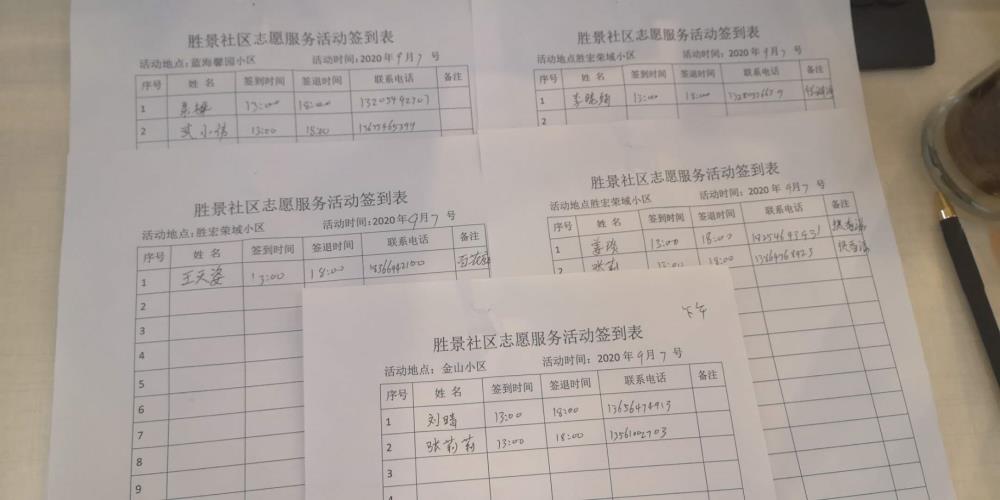 胜景社区志愿服务活动签到表
活动地点：蓝海馨园小区 活动时间：2020年9月7号
序号 姓 名 签到时间 签退时间 联系电话 备注
1 13:00 18:00
2 13:00 18:00
胜景社区志愿服务活动签到表
活动地点胜宏荣域小区 活动时间：2020年9月7号
序号 姓 名 签到时间 签退时间 联系电话 备注
1 13:00 18:00
2
胜景社区志愿服务活动签到表
活动地点:胜宏荣域小区 活动时间：2020年9月7号
序号 姓 名 签到时间 签退时间 联系电话 备注
1 王天姿 13:00 18:00
2
3
4
5
6
7
8
9
胜景社区志愿服务活动签到表
活动地点:胜宏荣域小区 活动时间：2020 9月7号
序号 姓 名 签到时间 签退时间 联系电话 备注
1 13:00 18:00
2 张莉 13:00 18:00
下午
胜景社区志愿服务活动签到表
活动地点：金山小区 活动时间：2020年9月7号
序号 姓 名 签到时间 签退时间 联系电话 备注
1 刘晴 13:00 18:00 13656474913
2 张莉莉 13:00 18:00 13561002703
3